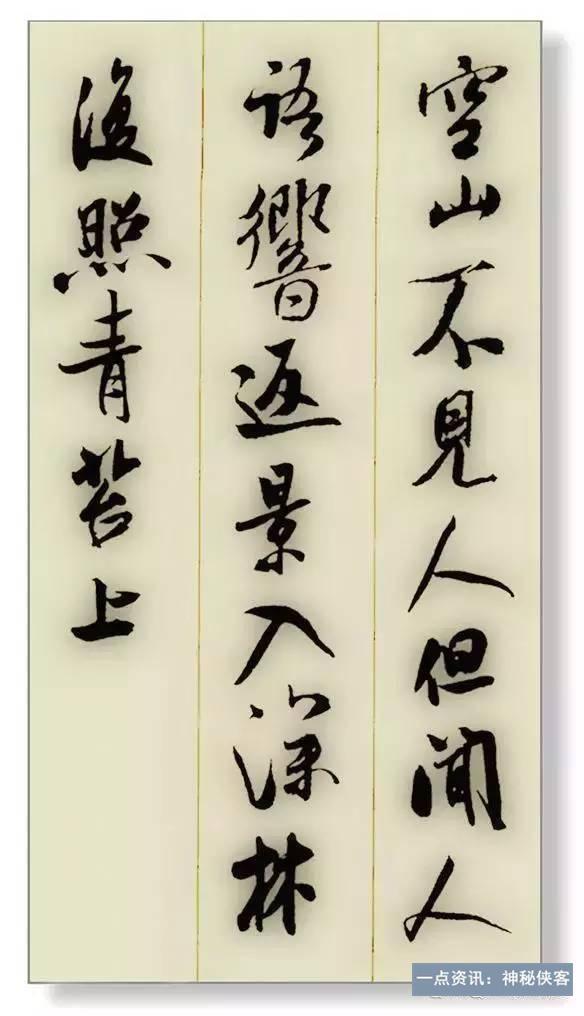 空山不見人但聞人
語響返景入深林
復照青苔上
一点资讯：神秘侠客